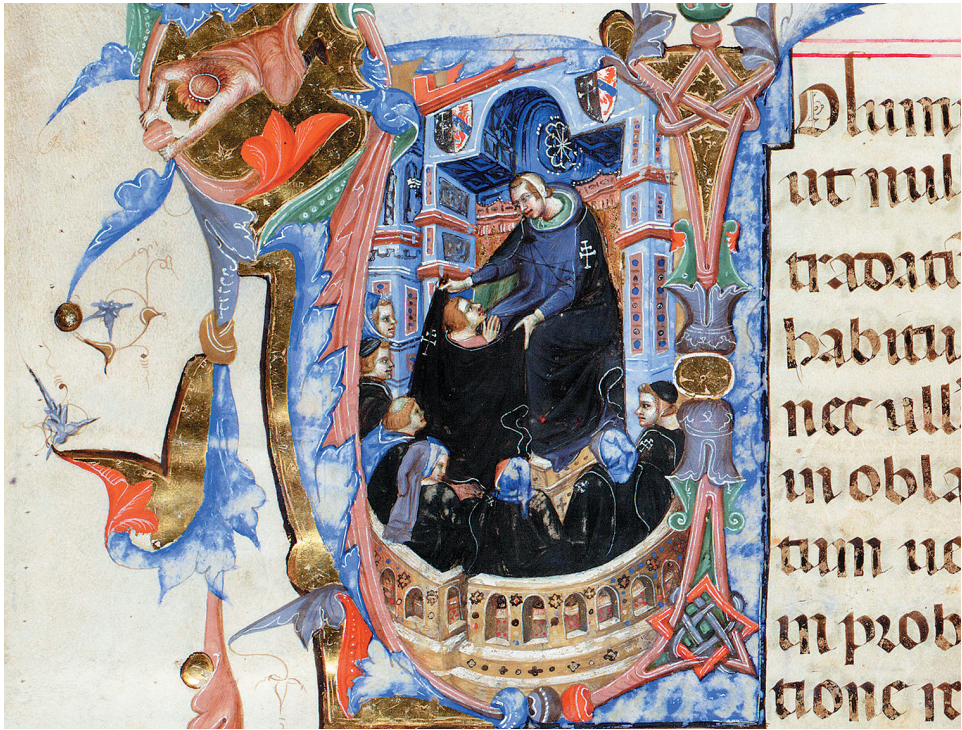 Olum
ut nul
tradatu
habitu
nec ull
in obla
tum ue
in prob
tione r